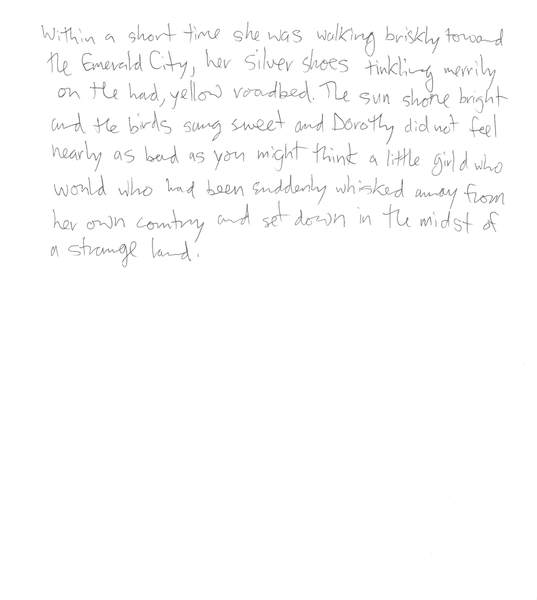 Within a short time she was walking briskly toward
the Emerald City, her Silver Shoes tinkling merrily
on the had, yellow roadbed. The sun shone bright
and the birds sang sweet and Dorothy did not feel
nearly as bad as you might think a little girl d who
would who had been suddenly whisked away from
her own country and set down in the midst of
a strange land.